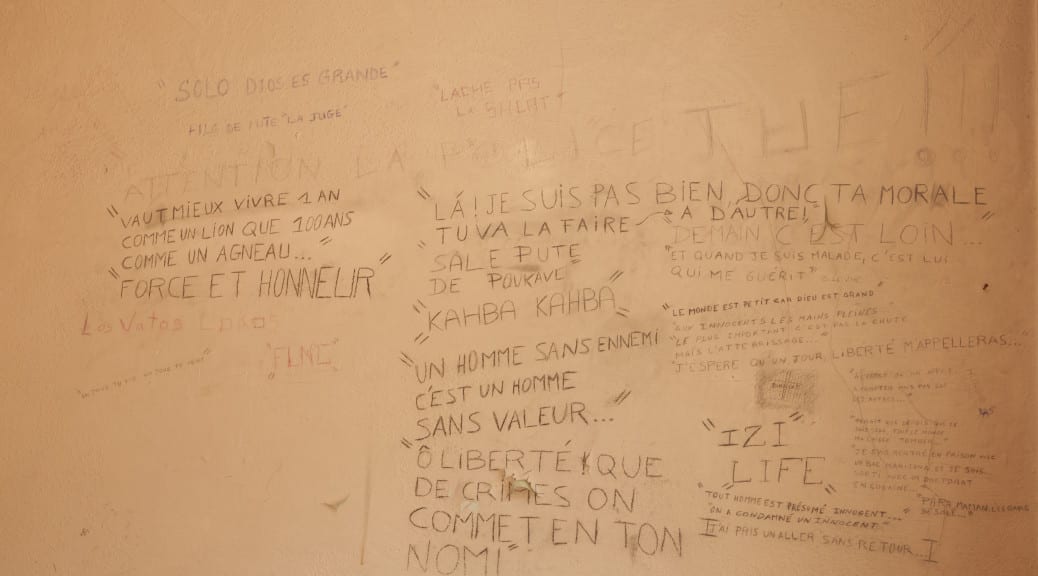 "SOLO DIOS ES GRANDE"
"LACHE PAS
LA SHLAT"
FILS DE PUTE "LA JUGE"
ATTENTION LA POLICE TUE!!!
"VAUT MIEUX VIVRE 1 AN
COMME UN LION QUE 100 ANS
COMME UN AGNEAU..."
"FORCE ET HONNEUR"
Los Vatos Locos
"FLNC"
"LÁ! JE SUIS PAS BIEN, DONC TA MORALE
TU VA LA FAIRE A D'AUTRE!"
"SALE PUTE
DE POUKAVE"
"KAHBA KAHBA"
"UN HOMME SANS ENNEMI
C'EST UN HOMME
SANS VALEUR..."
"Ô LIBERTÉ! QUE
DE CRIMES ON
COMMET EN TON
NOM!"
DEMAIN C'EST LOIN...
"ET QUAND JE SUIS MALADE, C'EST LUI
QUI ME GUÉRIT"
"LE MONDE EST PETIT CAR DIEU EST GRAND"
"AUX INNOCENTS LES MAINS PLEINES"
"LE PLUS IMPORTANT C'EST PAS LA CHUTE
MAIS L'ATTERRISSAGE..."
"J'ESPERE QU'UN JOUR LIBERTÉ M'APPELLERAS..."
"IZI
LIFE"
"JE SUIS RENTRÉ EN PRISON AVEC
UN BAC MARIJUANA ET JE SUIS
SORTI AVEC UN DOCTORAT
EN COCAINE..."
"TOUT HOMME EST PRÉSUMÉ INNOCENT..."
"ON A CONDAMNÉ UN INNOCENT"
"PAPA, MAMAN, LES GARS
DÉSOLÉ..."
J'AI PRIS UN ALLER SANS RETOUR...